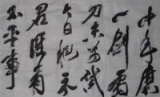 十年磨
一劍霜
刃未曾試
今日把示
君誰有
不平事